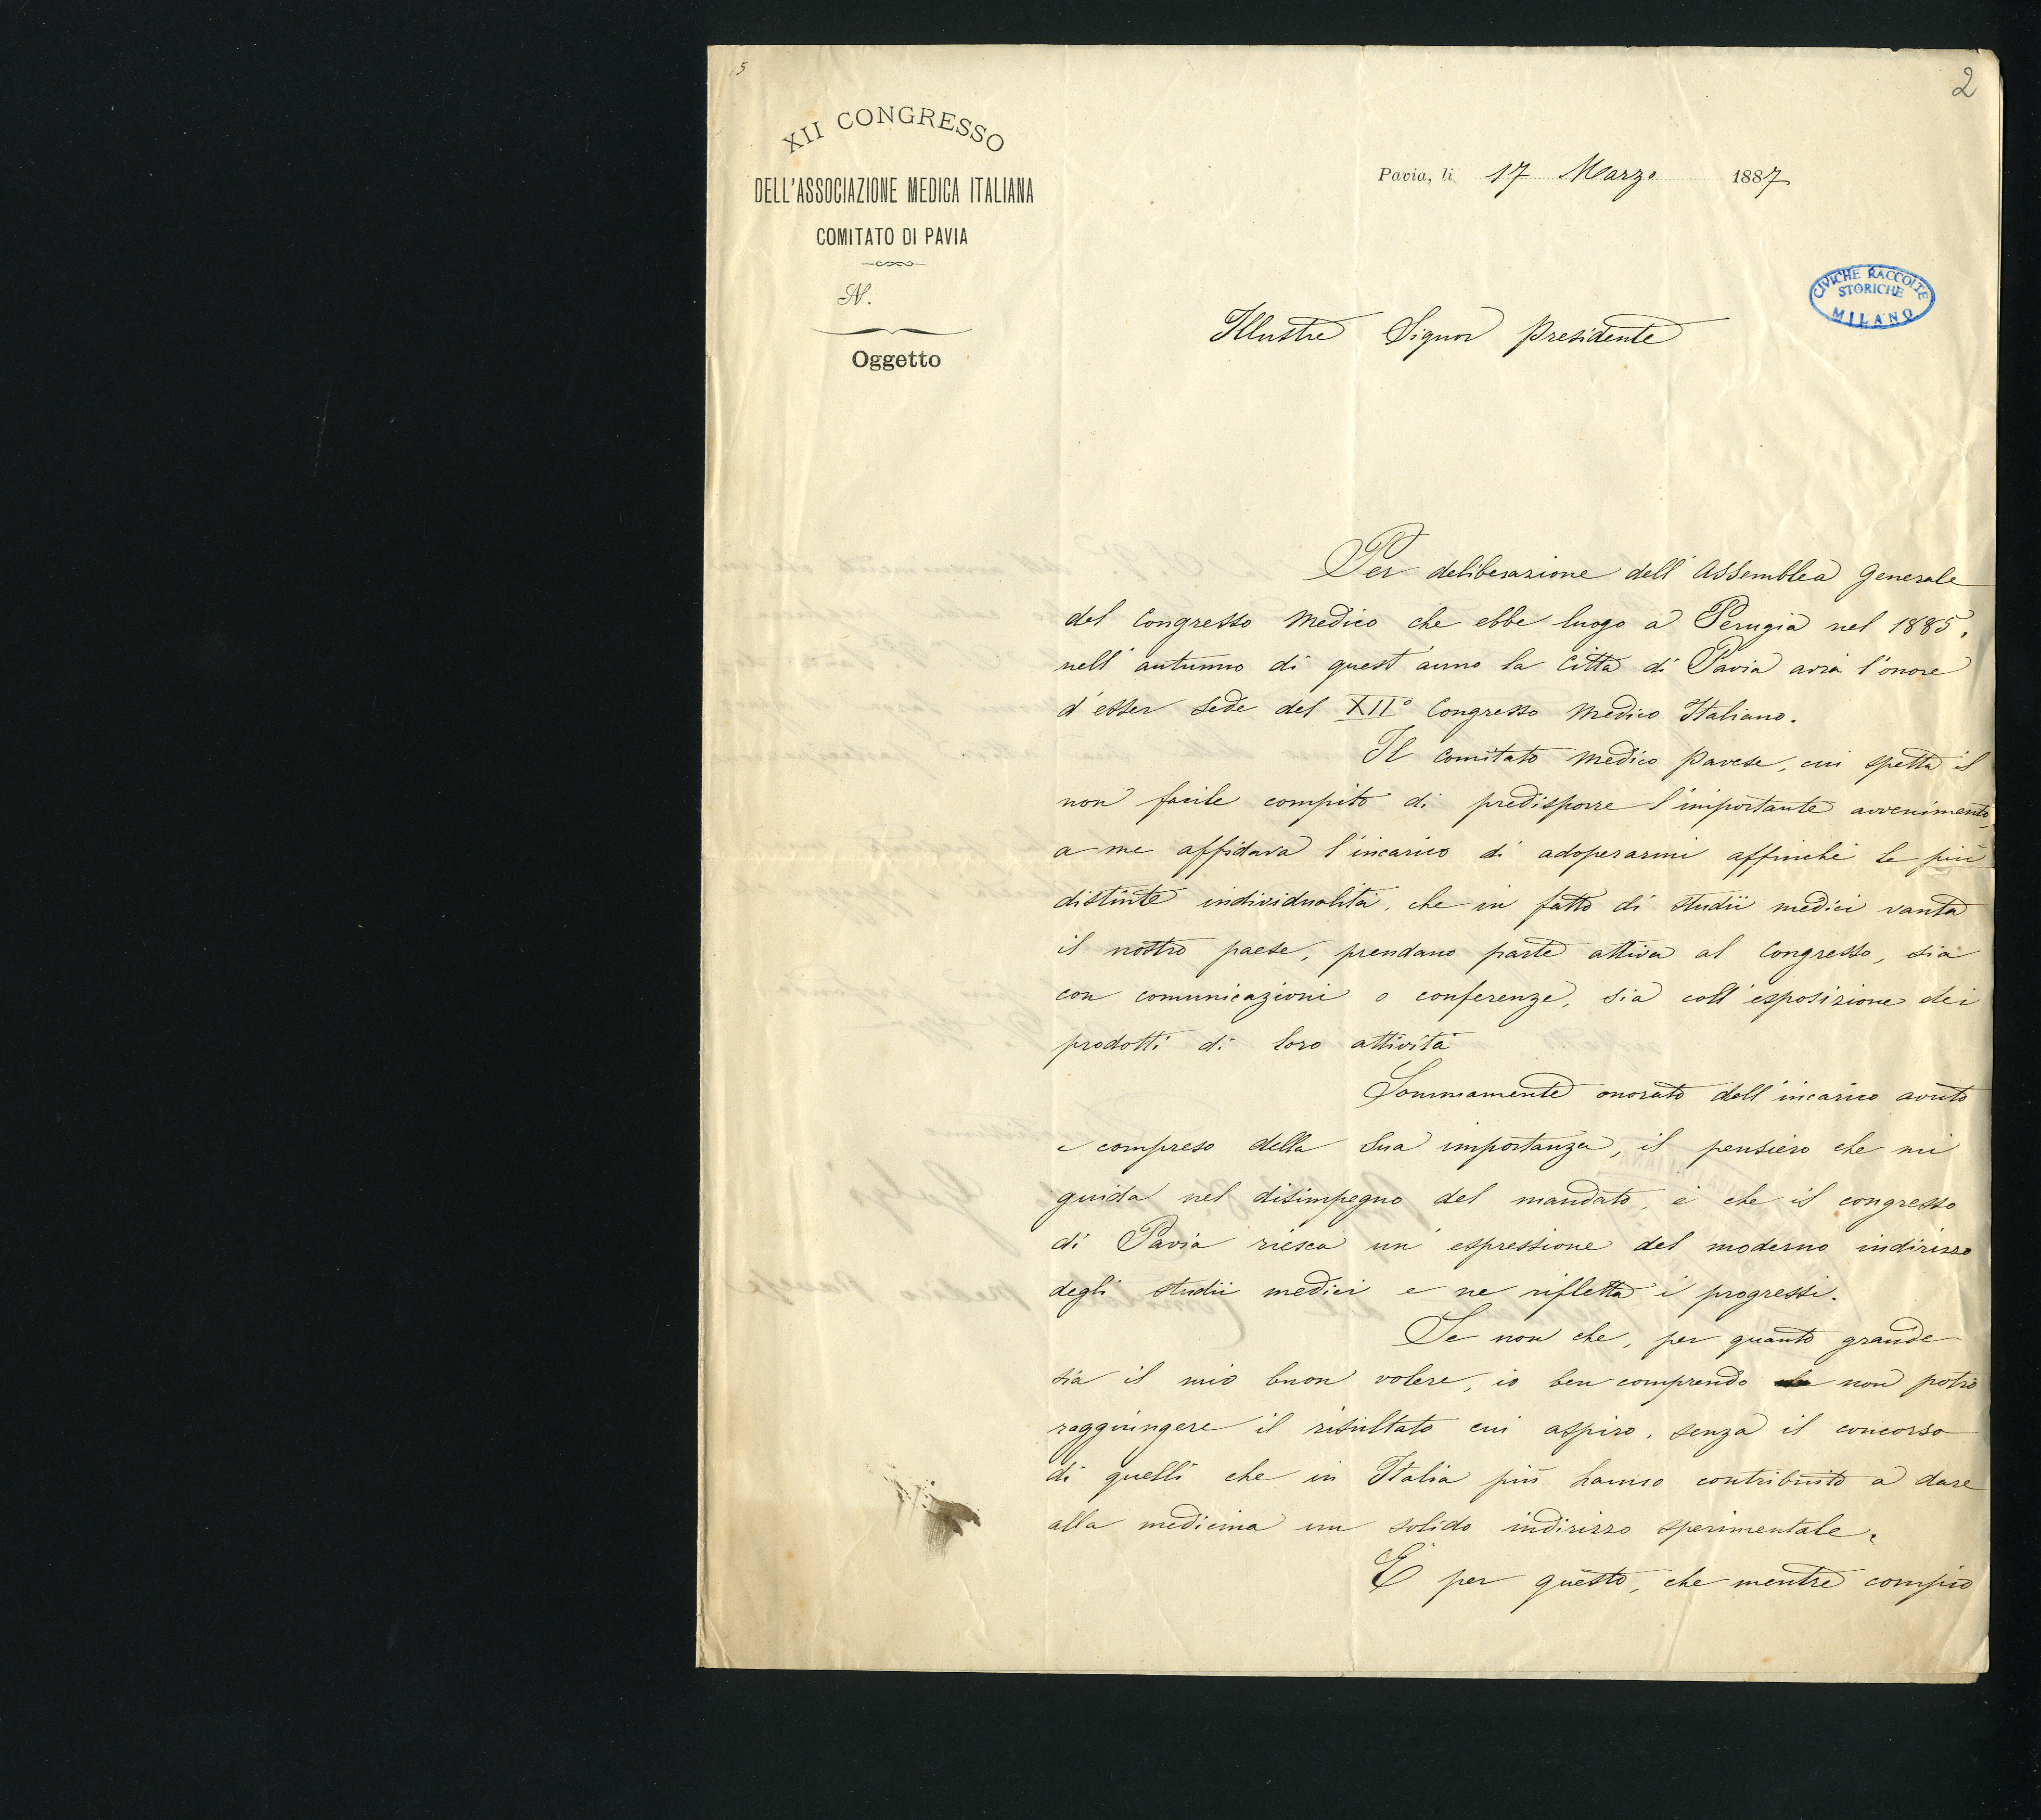 5
2
XII CONGRESSO
DELL'ASSOCIAZIONE MEDICA ITALIANA
COMITATO DI PAVIA
N.
Oggetto
Pavia, li 17 Marzo 1887
CIVICHE RACCOLTE
STORICHE
MILANO
Illustre Signor Presidente
Per deliberazione dell'Assemblea Generale
del Congresso Medico che ebbe luogo a Perugia nel 1885,
nell'autunno di quest'anno la Città di Pavia avrà l'onore
d'esser sede del XII° Congresso Medico Italiano.
Il Comitato Medico Pavese, cui spetta il
non facile compito di predisporre l'importante avvenimento,
a me affidava l'incarico di adoperarmi affinchè le più
distinte individualità, che in fatto di studii medici vanta
il nostro paese, prendano parte attiva al Congresso, sia
con comunicazioni o conferenze, sia coll'esposizione dei
prodotti di loro attività
Sommamente onorato dell'incarico avuto
e compreso della sua importanza, il pensiero che mi
guida nel disimpegno del mandato, è che il congresso
di Pavia riesca un'espressione del moderno indirizzo
degli studii medici e ne rifletta i progressi.
Se non che, per quanto grande
sia il mio buon volere, io ben comprendo non potrò
raggiungere il risultato cui aspiro, senza il concorso
di quelli che in Italia più hanno contribuito a dare
alla medicina un solido indirizzo sperimentale.
E per questo, che mentre compio